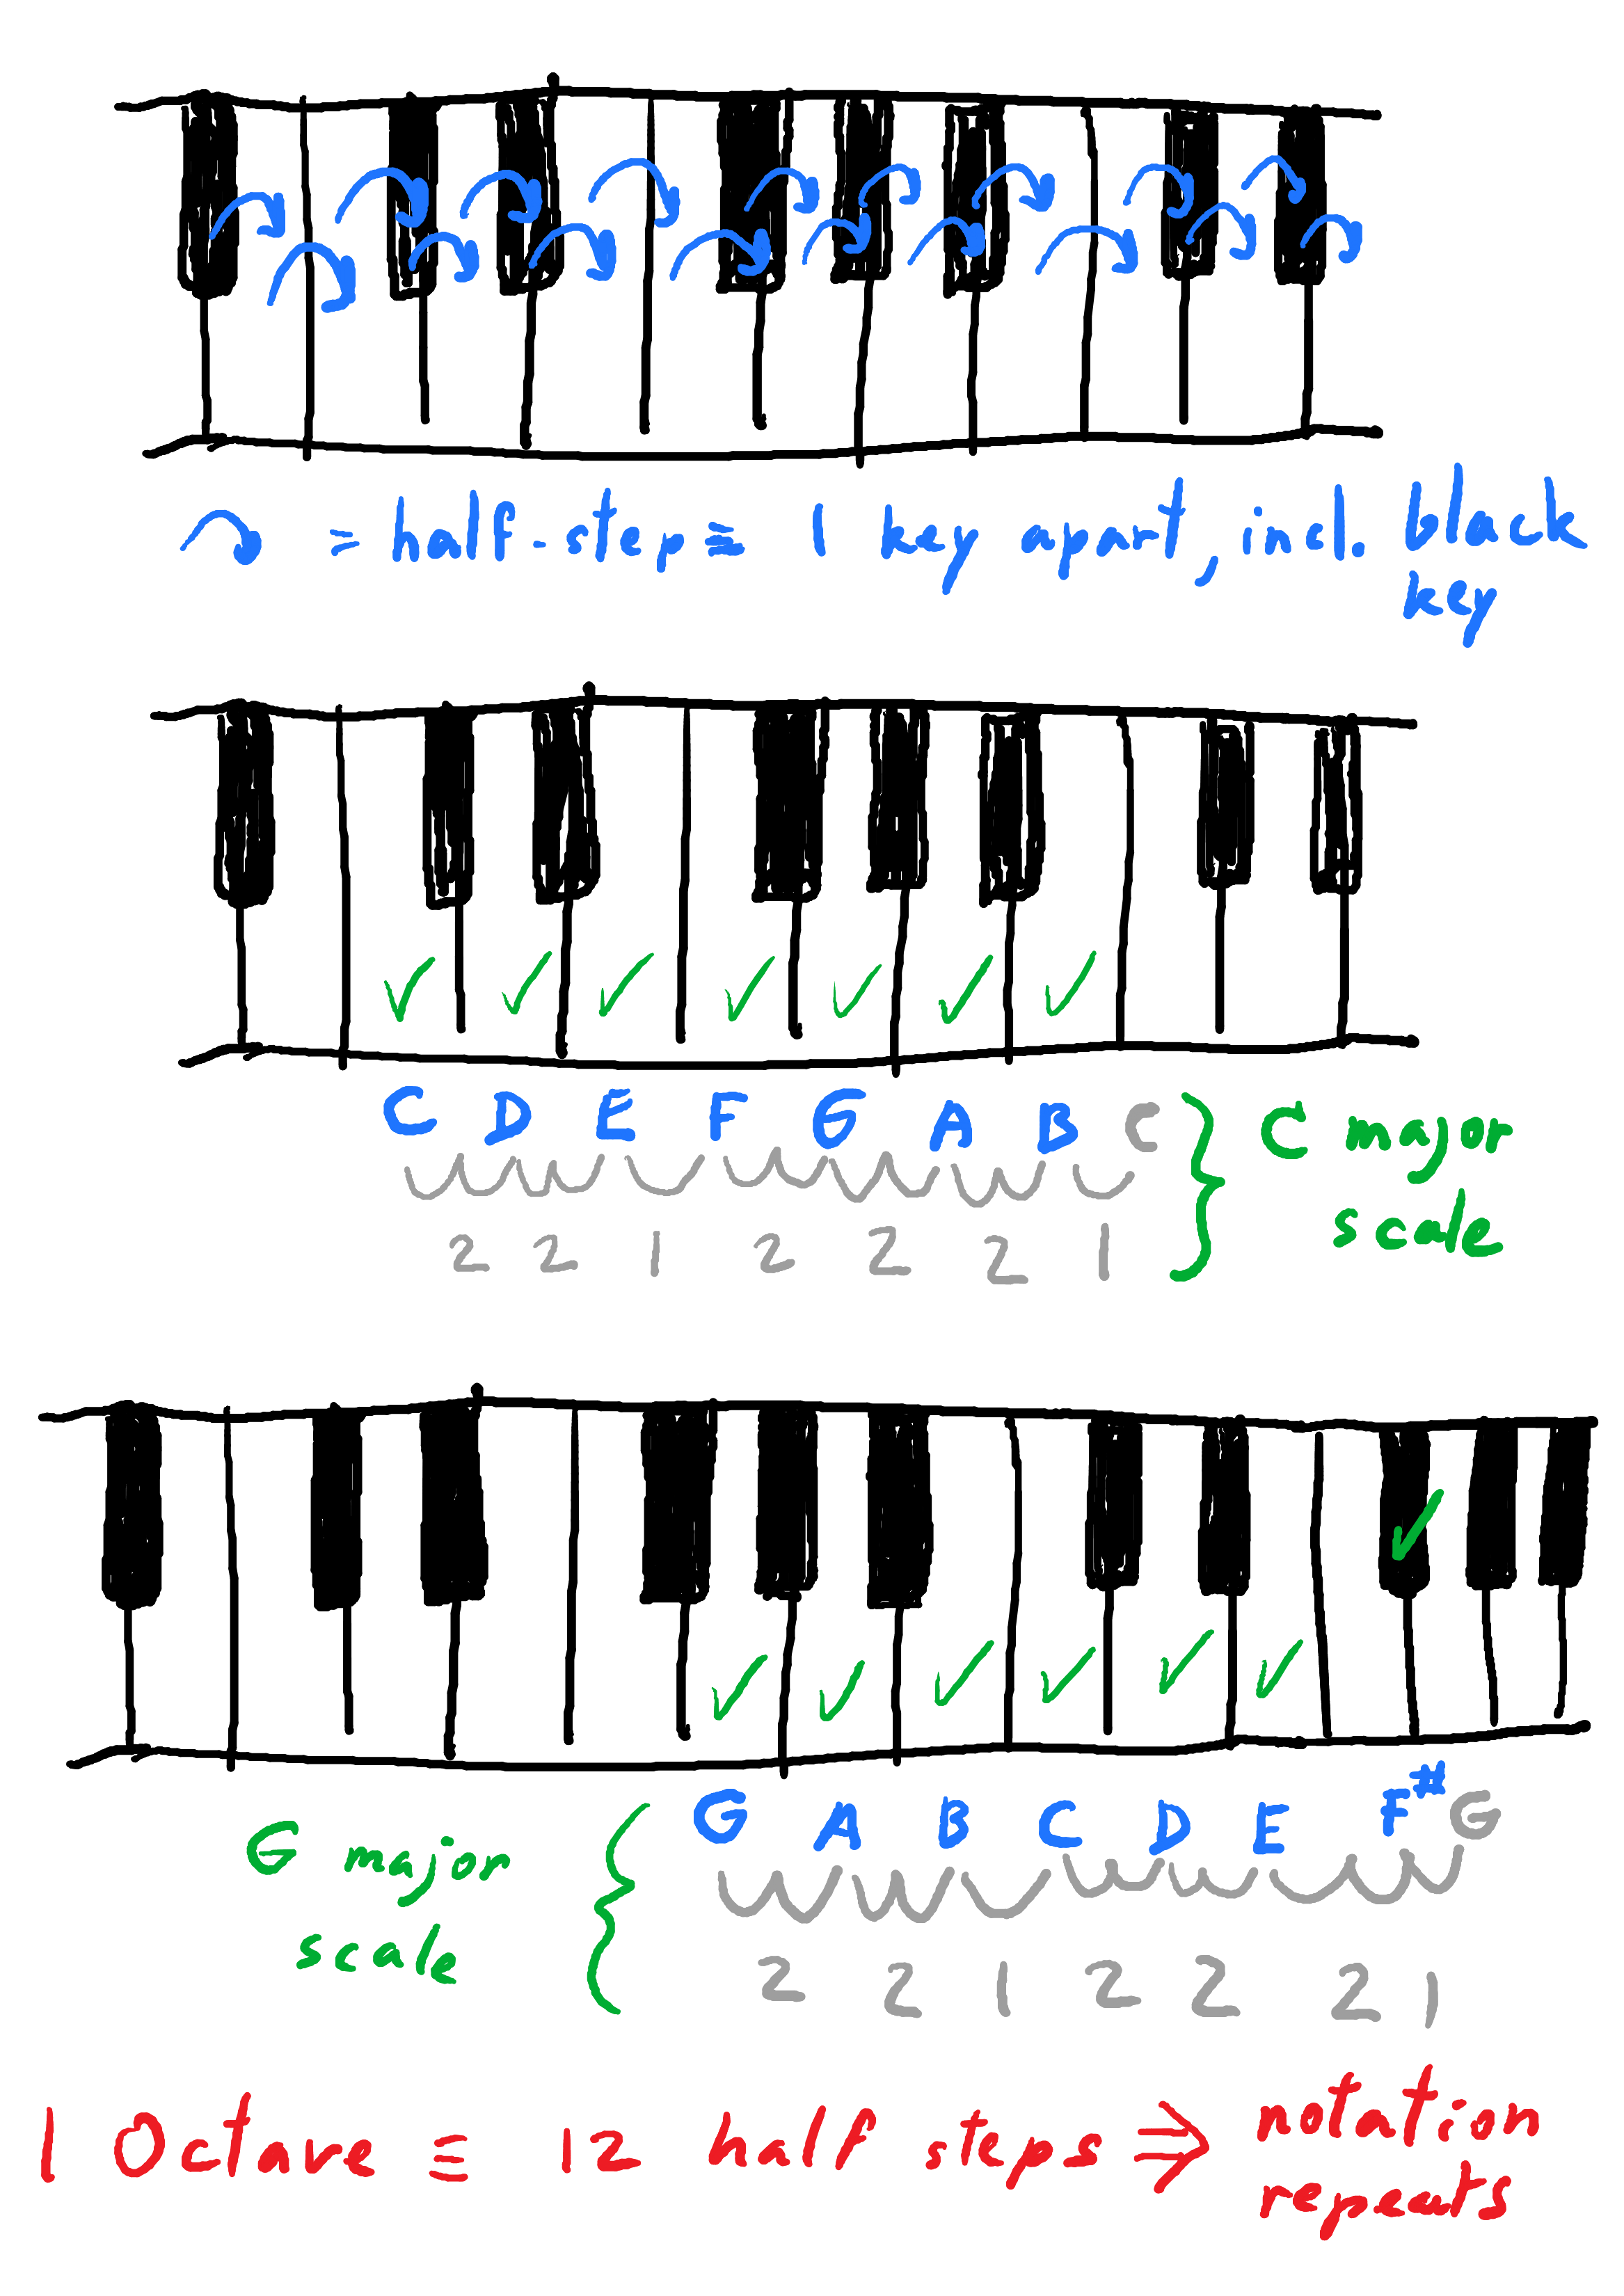 = half-step ≡ 1 key apart, incl. black
key
C D E F G A B C
2 2 1 2 2 2 1
C major
scale
G A B C D E F# G
2 2 1 2 2 2 1
G major
scale
1 Octave ≡ 12 half steps ⇒ notation
repeats